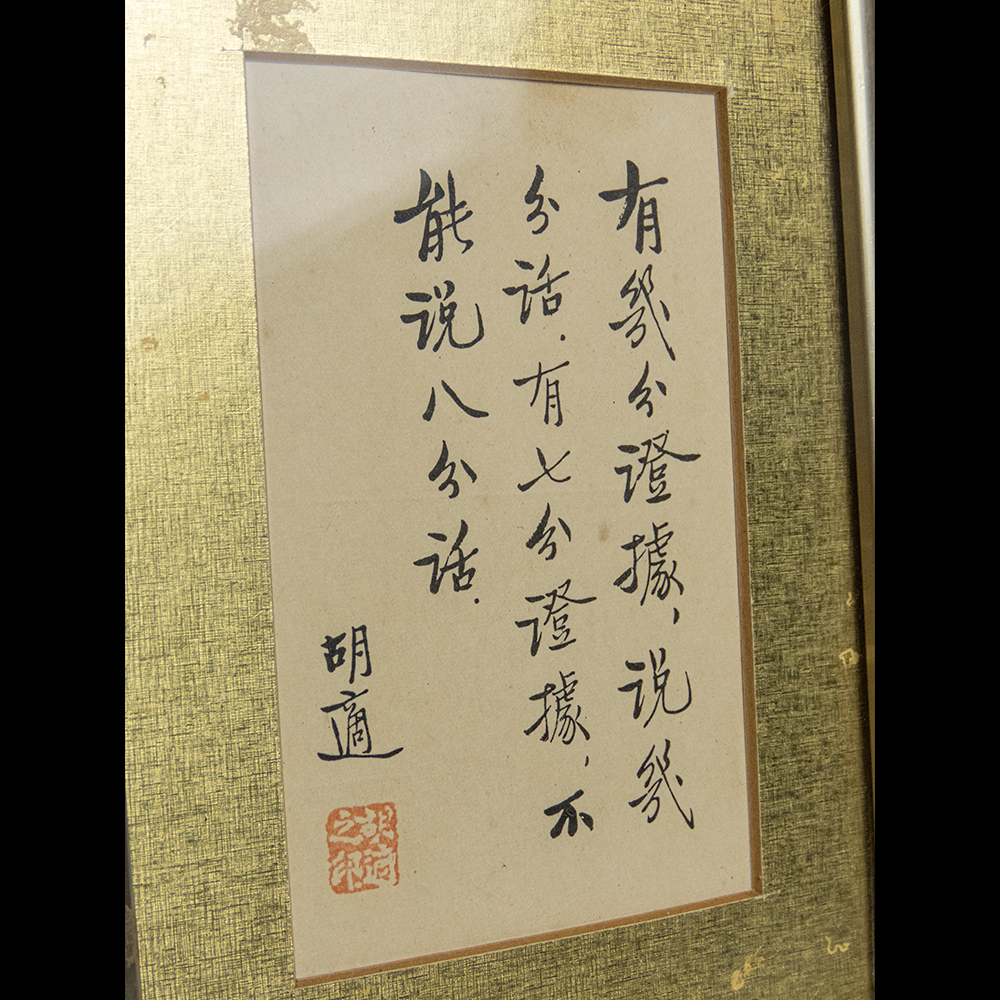 有幾分證據，说幾
分话．有七分證據，不
能说八分话．
胡適
胡適
之印